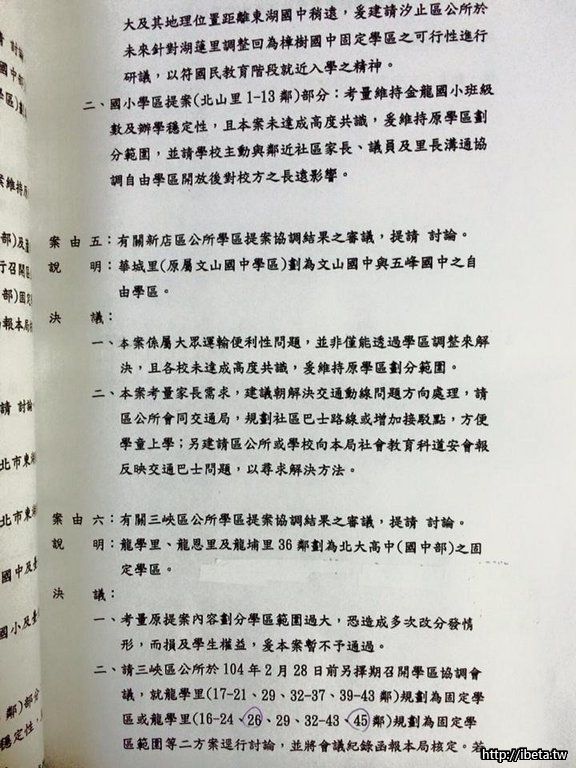 大及其地理位置距離東湖國中稍遠，爰建請汐止區公所於
未來針對湖蓮里調整回為樟樹國中固定學區之可行性進行
研議，以符國民教育階段就近入學之精神。
二、國小學區提案(北山里1-13鄰)部分：考量維持金龍國小班級
數及辦學穩定性，且本案未達成高度共識，爰維持原學區劃
分範圍，並請學校主動與鄰近社區家長、議員及里長溝通協
調自由學區開放後對校方之長遠影響。
案由五：有關新店區公所學區提案協調結果之審議，提請 討論。
說明：華城里(原屬文山國中學區)劃為文山國中與五峰國中之自
由學區。
決議：
一、本案係屬大眾運輸便利性問題，並非僅能透過學區調整來解
決，且各校未達成高度共識，爰維持原學區劃分範圍。
二、本案考量家長需求，建議朝解決交通動線問題方向處理，請
區公所會同交通局，規劃社區巴士路線或增加接駁點，方便
學童上學；另建請區公所或學校向本局社會教育科道安會報
反映交通巴士問題，以尋求解決方法。
案由六：有關三峽區公所學區提案協調結果之審議，提請 討論。
說明：龍學里、龍恩里及龍埔里36鄰劃為北大高中(國中部)之固
定學區。
決議：
一、考量原提案內容劃分學區範圍過大，恐造成多次改分發情
形，而損及學生權益，爰本案暫不予通過。
二、請三峽區公所於104年2月28日前另擇期召開學區協調會
議，就龍學里(17-21、29、32-37、39-43鄰)規劃為固定學
區或龍學里(16-24、26、29、32-43、45鄰)規劃為固定學
區範圍等二方案逕行討論，並將會議紀錄函報本局核定。若
http://ibeta.tw